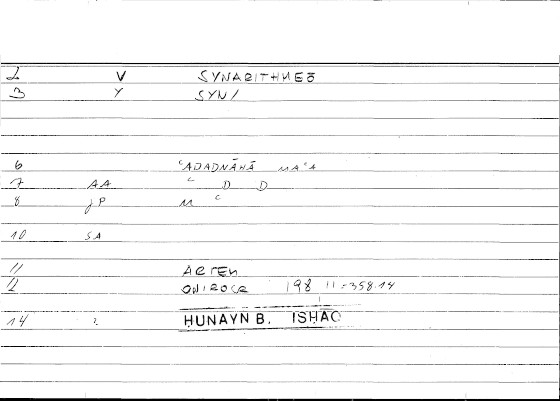 2 V SYNARITHMEŌ
3 Y SYN/
6 ʿADADNĀHĀ MAʿA
7 AA ʿ D D
8 JP M ʿ
10 SA
11 ARTEM
12 ONIROCR 198 11 = 358.14
14 2 HUNAYN B. ISHAQ